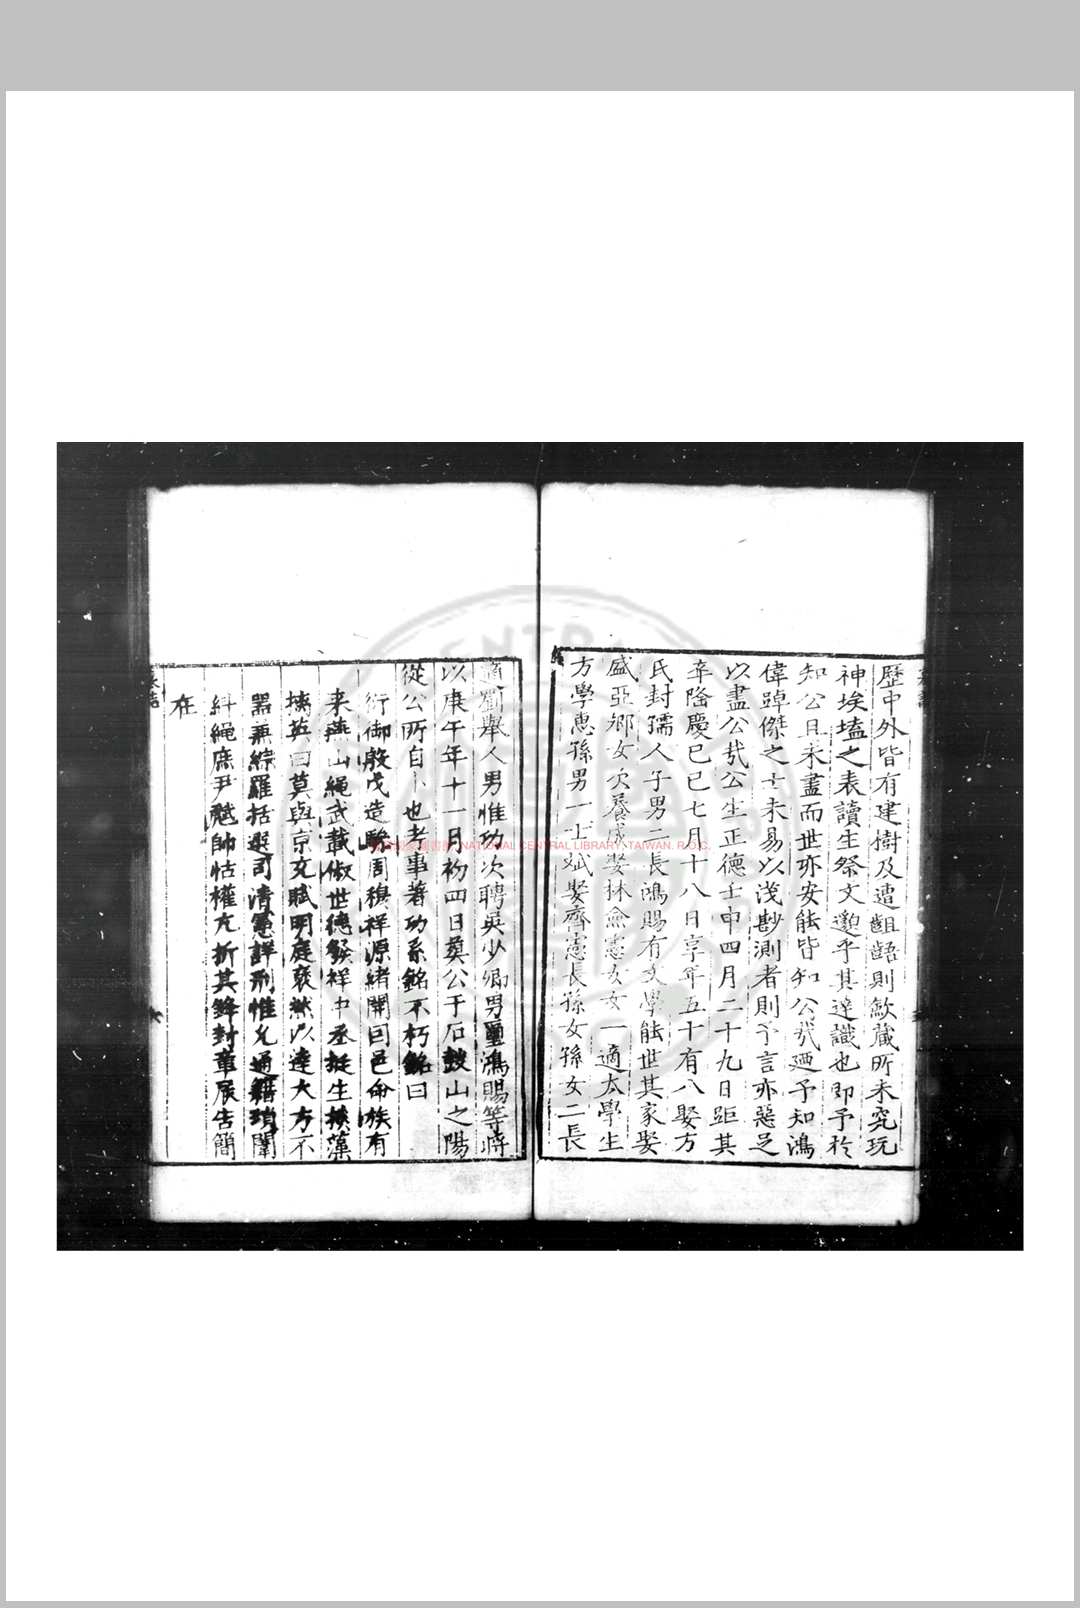 歷中外皆有建樹及遭齟齬則歛蔵所未究玩
神埃壒之表讀生祭文邈乎其達識也即予於
知公且未盡而世亦安能皆知公哉廼予知鴻
偉踔傑之士未易以淺尠測者則予言亦惡足
以盡公哉公生正德壬申四月二十九日距其
卒隆慶已巳七月十八日享年五十有八娶方
氏封孺人子男二長鴻賜有文學能世其家娶
盛亞鄉女次養成娶林僉憲女女一適太學生
方學惠孫男一士斌娶齊憲長孫女孫女二長
適劉舉人男惟功次聘吳少卿男璽鴻賜等將
以庚午年十一月初四日葬公于石鼓山之陽
從公所自卜也考事著功系銘不朽銘曰
衍御殷戊造駿周穆祥源緒開因邑命族有
来燕山繩武載俶世德發祥中丞挺生掞藻
摛英曰莫與京文賦明庭褎然以達大方不
器兼綜羅括選司清憲詳刑惟允通籍瑣闈
糾繩庶尹魑帥怙權亢折其鋒封章展告簡
在
NATIONAL CENTRAL LIBRARY, TAIWAN, R.O.C.